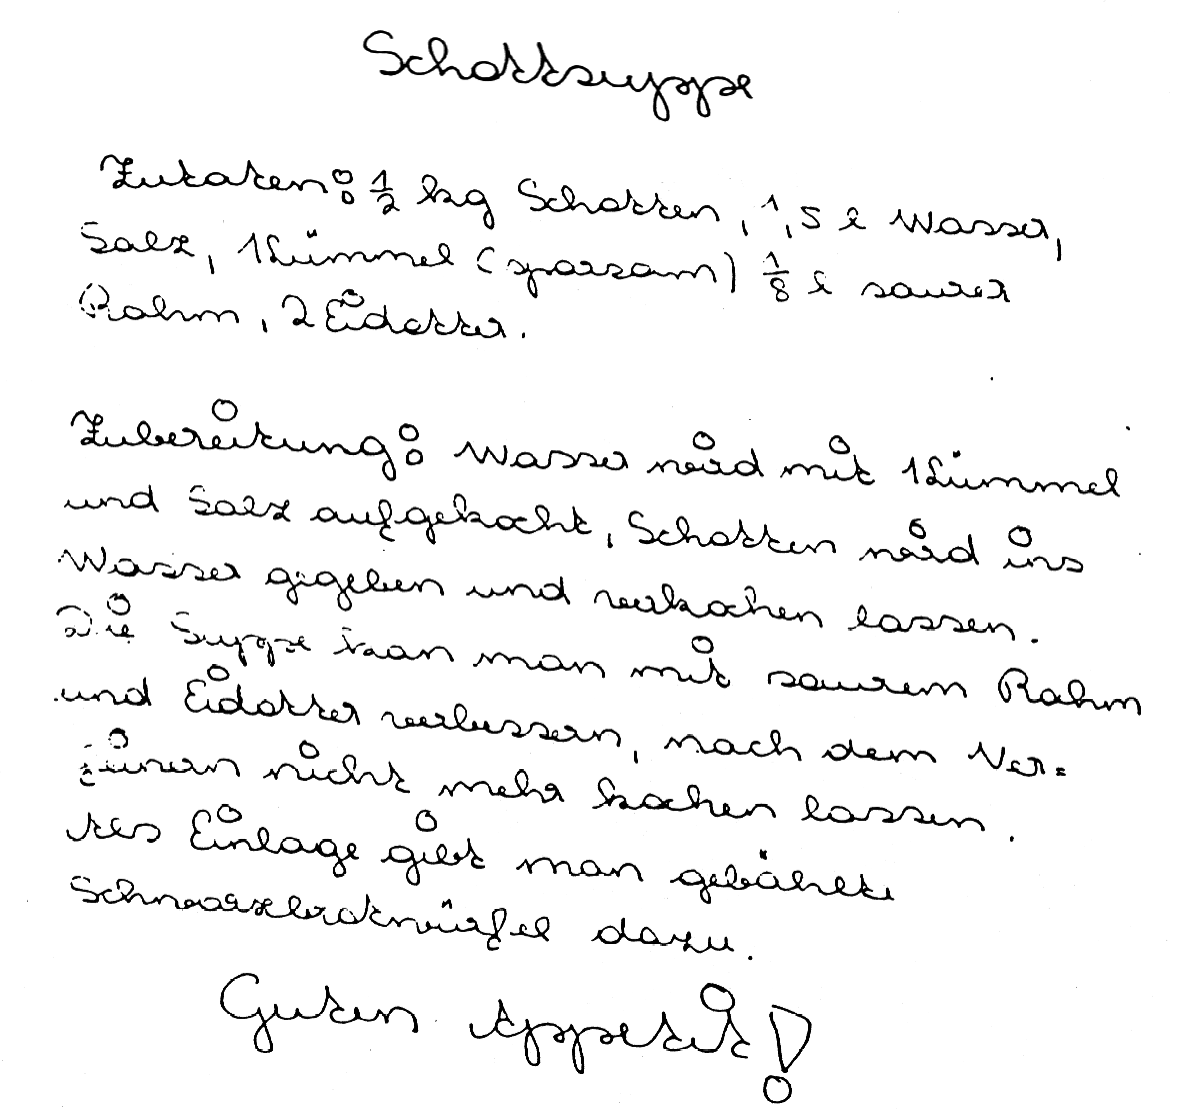 Schottsuppe
Zutaten: 1/2 kg Schotten, 1,5 l Wasser,
Salz, Kümmel (sparsam) 1/8 l saurer
Rahm, 2 Eidotter.
Zubereitung: Wasser wird mit Kümmel
und Salz aufgekocht, Schotten wird ins
Wasser gegeben und verkochen lassen.
Die Suppe kan man mit saurem Rahm
und Eidotter verbessern, nach dem Ver=
feinern nicht mehr kochen lassen.
Als Einlage gibt man gebähte
Schwarzbrotwürfel dazu.
Guten Appetit!